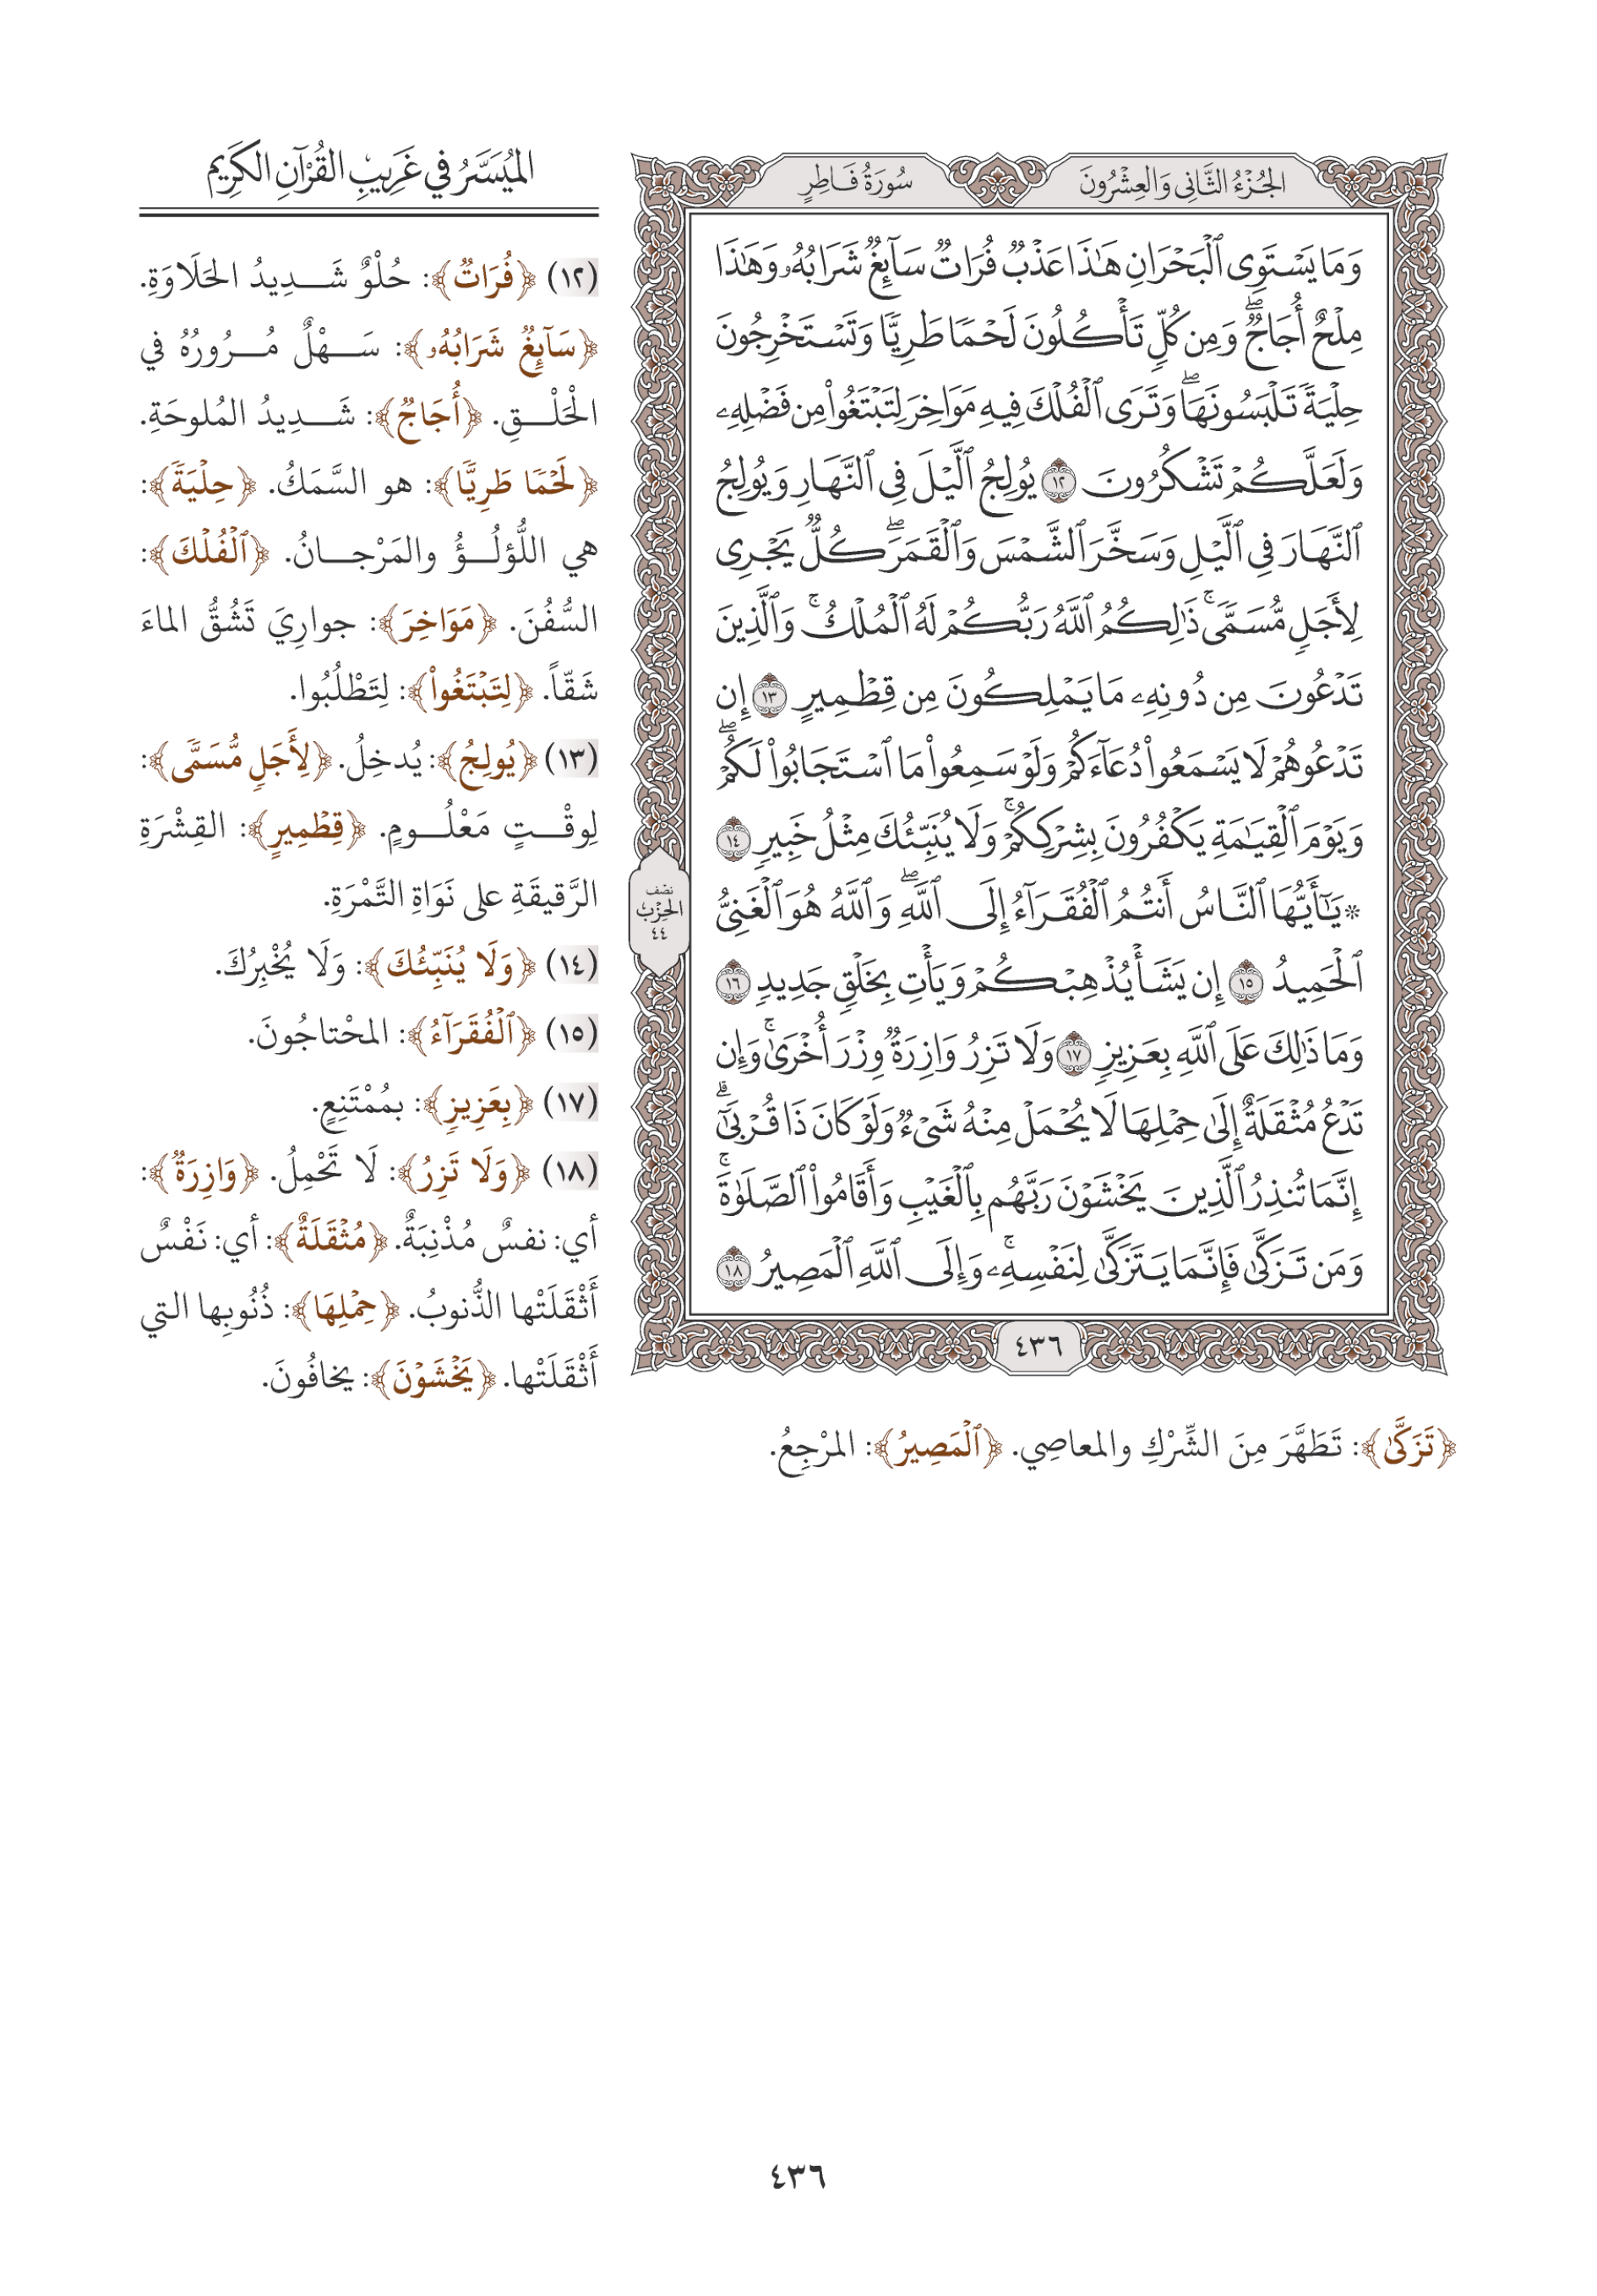 الجُزْءُ الثَّانِي وَالعِشْرُونَ
سُورَةُ فَاطِرٍ
وَمَا يَسْتَوِى ٱلْبَحْرَانِ هَٰذَا عَذْبٌ فُرَاتٌ سَآئِغٌ شَرَابُهُۥ وَهَٰذَا
مِلْحٌ أُجَاجٌۖ وَمِن كُلٍّ تَأْكُلُونَ لَحْمًا طَرِيًّا وَتَسْتَخْرِجُونَ
حِلْيَةً تَلْبَسُونَهَاۖ وَتَرَى ٱلْفُلْكَ فِيهِ مَوَاخِرَ لِتَبْتَغُوا۟ مِن فَضْلِهِۦ
وَلَعَلَّكُمْ تَشْكُرُونَ ١٢ يُولِجُ ٱلَّيْلَ فِى ٱلنَّهَارِ وَيُولِجُ
ٱلنَّهَارَ فِى ٱلَّيْلِ وَسَخَّرَ ٱلشَّمْسَ وَٱلْقَمَرَۖ كُلٌّ يَجْرِى
لِأَجَلٍ مُّسَمًّىۚ ذَٰلِكُمُ ٱللَّهُ رَبُّكُمْ لَهُ ٱلْمُلْكُۚ وَٱلَّذِينَ
تَدْعُونَ مِن دُونِهِۦ مَا يَمْلِكُونَ مِن قِطْمِيرٍ ١٣ إِن
تَدْعُوهُمْ لَا يَسْمَعُوا۟ دُعَآءَكُمْ وَلَوْ سَمِعُوا۟ مَا ٱسْتَجَابُوا۟ لَكُمْۖ
وَيَوْمَ ٱلْقِيَٰمَةِ يَكْفُرُونَ بِشِرْكِكُمْۚ وَلَا يُنَبِّئُكَ مِثْلُ خَبِيرٍ ١٤
۞ يَٰٓأَيُّهَا ٱلنَّاسُ أَنتُمُ ٱلْفُقَرَآءُ إِلَى ٱللَّهِۖ وَٱللَّهُ هُوَ ٱلْغَنِىُّ
ٱلْحَمِيدُ ١٥ إِن يَشَأْ يُذْهِبْكُمْ وَيَأْتِ بِخَلْقٍ جَدِيدٍ ١٦
وَمَا ذَٰلِكَ عَلَى ٱللَّهِ بِعَزِيزٍ ١٧ وَلَا تَزِرُ وَازِرَةٌ وِزْرَ أُخْرَىٰۚ وَإِن
تَدْعُ مُثْقَلَةٌ إِلَىٰ حِمْلِهَا لَا يُحْمَلْ مِنْهُ شَىْءٌ وَلَوْ كَانَ ذَا قُرْبَىٰٓۗ
إِنَّمَا تُنذِرُ ٱلَّذِينَ يَخْشَوْنَ رَبَّهُم بِٱلْغَيْبِ وَأَقَامُوا۟ ٱلصَّلَوٰةَۚ
وَمَن تَزَكَّىٰ فَإِنَّمَا يَتَزَكَّىٰ لِنَفْسِهِۦۚ وَإِلَى ٱللَّهِ ٱلْمَصِيرُ ١٨
نصف
الحِزْب
٤٤
٤٣٦
المُيَسَّرُ في غَرِيبِ القُرْآنِ الكَرِيم
(١٢) ﴿فُرَاتٌ﴾: حُلْوٌ شَدِيدُ الحَلَاوَةِ.
﴿سَآئِغٌ شَرَابُهُۥ﴾: سَهْلٌ مُرُورُهُ في
الْحَلْقِ. ﴿أُجَاجٌ﴾: شَدِيدُ المُلوحَةِ.
﴿لَحْمًا طَرِيًّا﴾: هو السَّمَكُ. ﴿حِلْيَةً﴾:
هي اللُّؤلُؤُ والمَرْجانُ. ﴿ٱلْفُلْكَ﴾:
السُّفُنَ. ﴿مَوَاخِرَ﴾: جوارِيَ تَشُقُّ الماءَ
شَقّاً. ﴿لِتَبْتَغُوا۟﴾: لِتَطْلُبُوا.
(١٣) ﴿يُولِجُ﴾: يُدخِلُ. ﴿لِأَجَلٍ مُّسَمًّى﴾:
لِوقْتٍ مَعْلُومٍ. ﴿قِطْمِيرٍ﴾: القِشْرَةِ
الرَّقيقَةِ على نَوَاةِ التَّمْرَةِ.
(١٤) ﴿وَلَا يُنَبِّئُكَ﴾: وَلَا يُخْبِرُكَ.
(١٥) ﴿ٱلْفُقَرَآءُ﴾: المحْتاجُونَ.
(١٧) ﴿بِعَزِيزٍ﴾: بمُمْتَنِعٍ.
(١٨) ﴿وَلَا تَزِرُ﴾: لَا تَحْمِلُ. ﴿وَازِرَةٌ﴾:
أي: نفسٌ مُذْنِبَةٌ. ﴿مُثْقَلَةٌ﴾: أي: نَفْسٌ
أَثْقَلَتْها الذُّنوبُ. ﴿حِمْلِهَا﴾: ذُنُوبِها التي
أَثْقَلَتْها. ﴿يَخْشَوْنَ﴾: يخافُونَ.
﴿تَزَكَّىٰ﴾: تَطَهَّرَ مِنَ الشِّرْكِ والمعاصِي. ﴿ٱلْمَصِيرُ﴾: المرْجِعُ.
٤٣٦